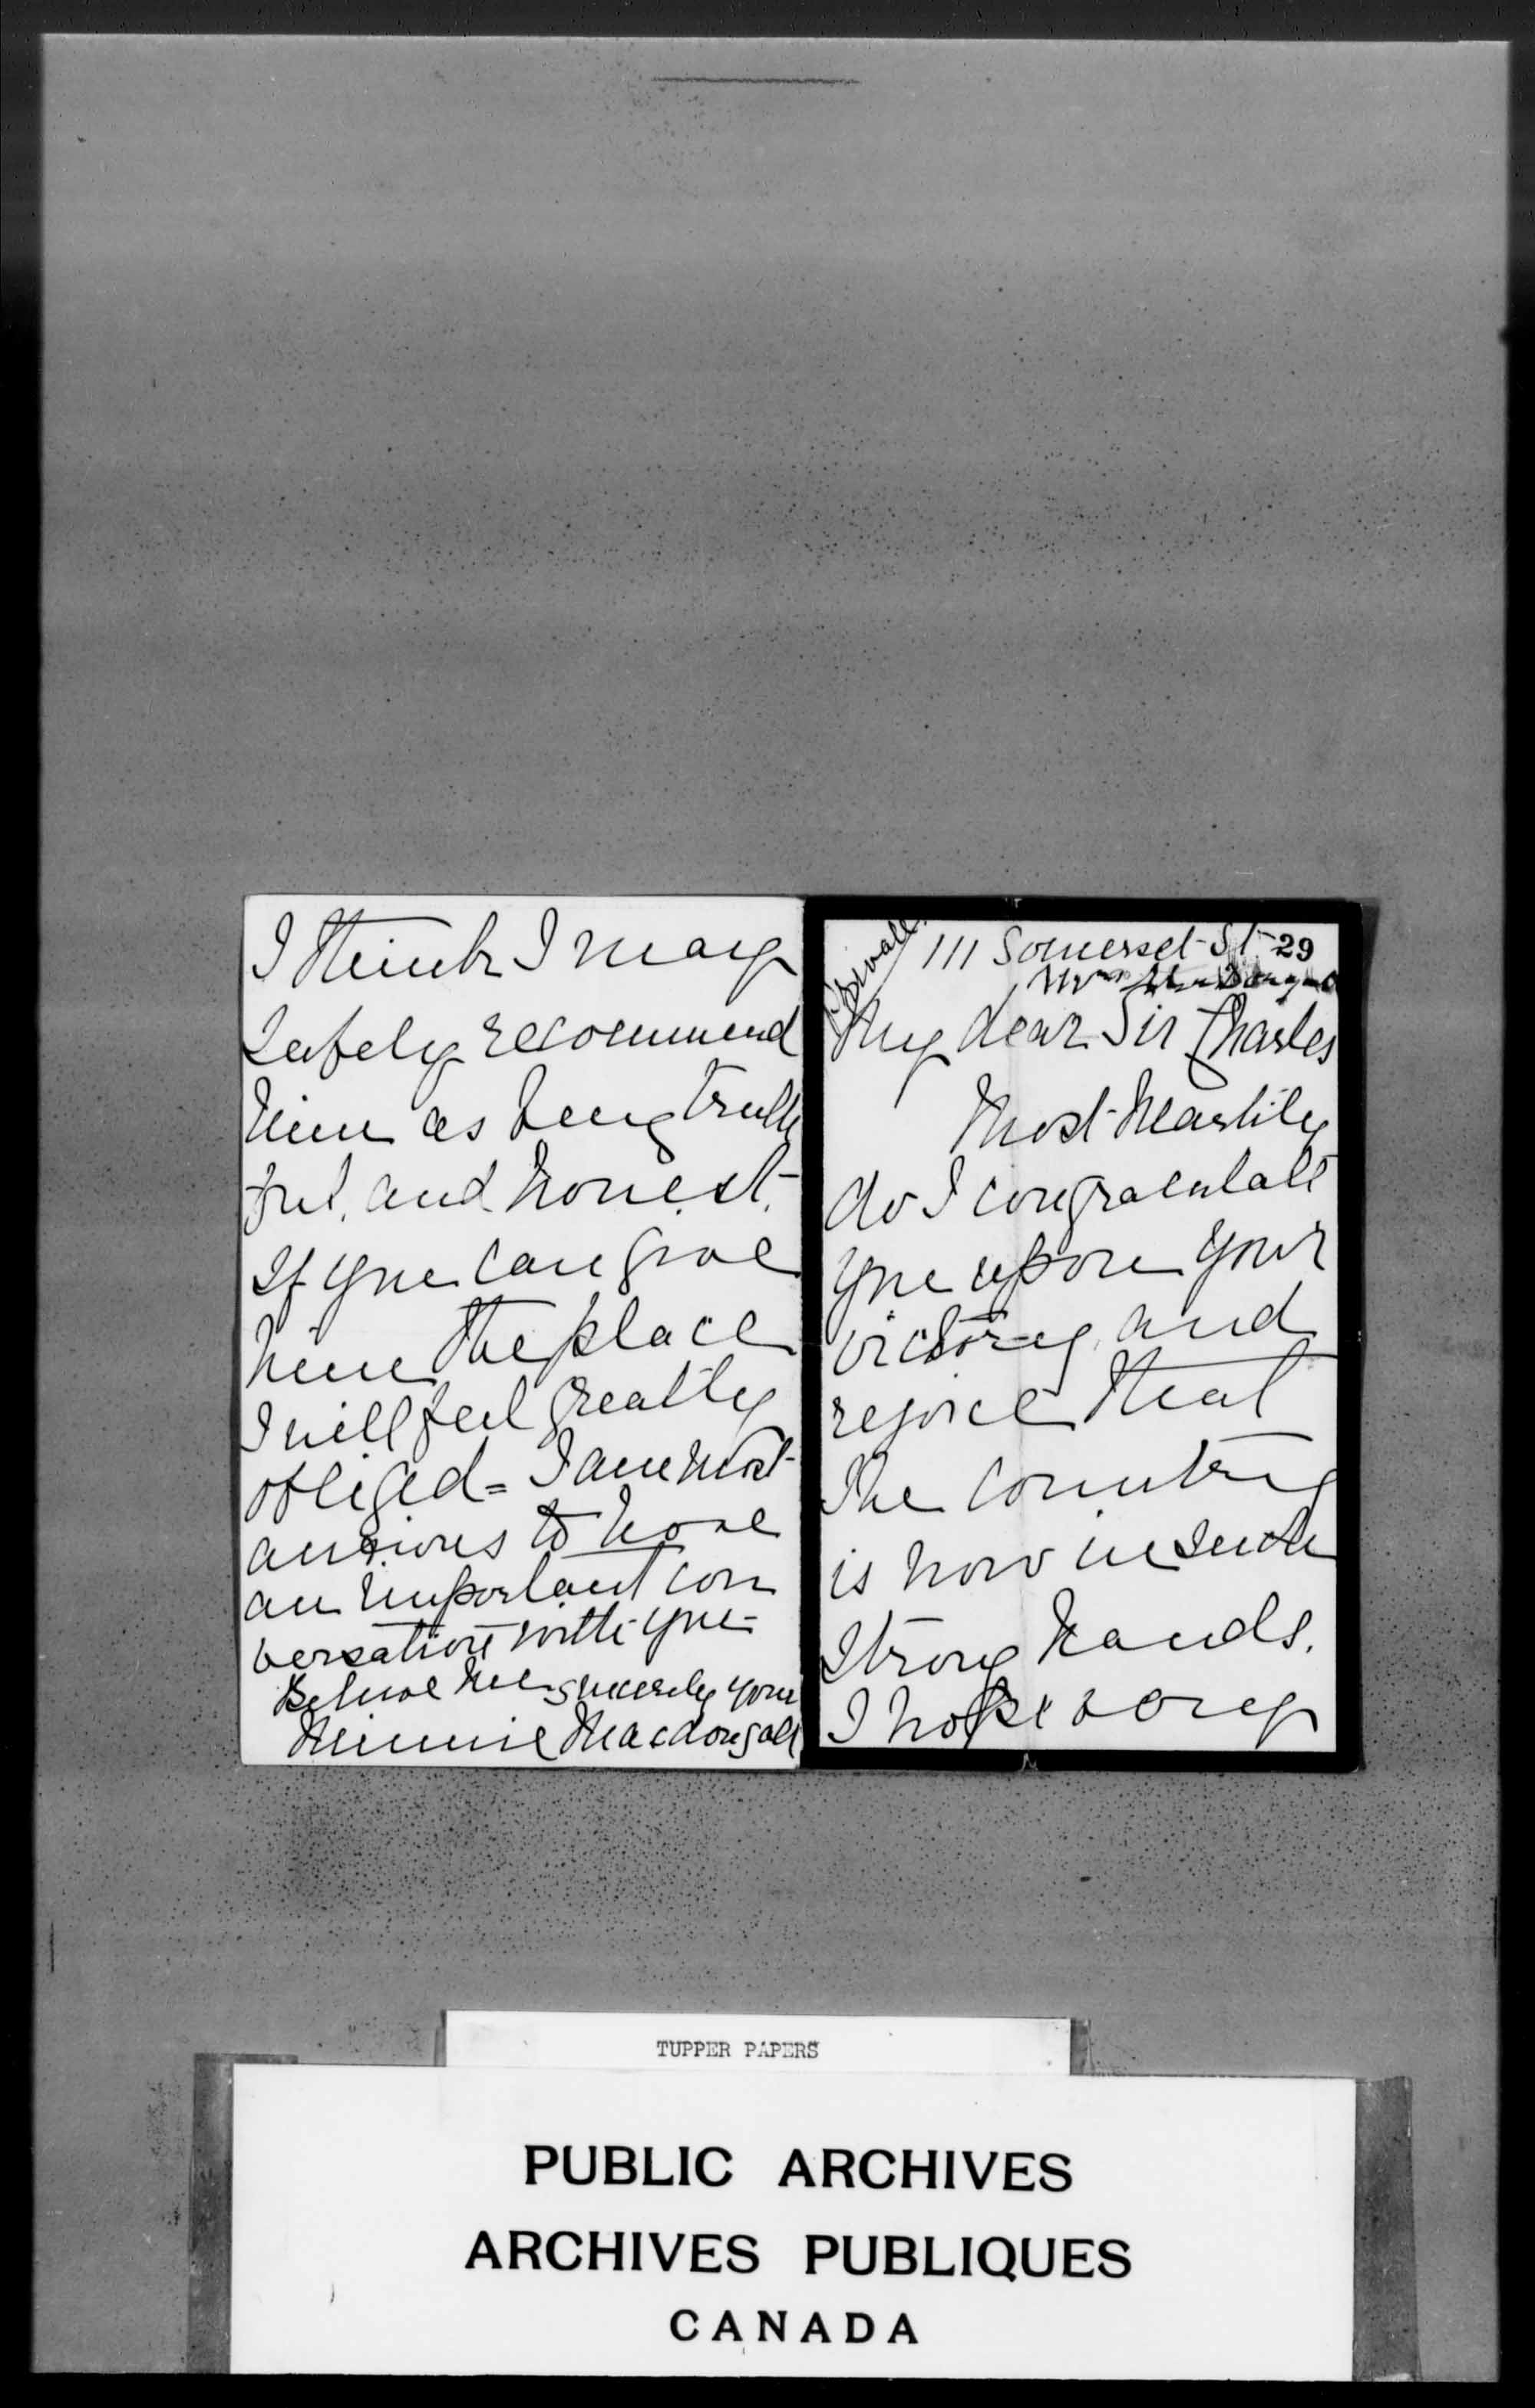 Private
111 Somerset St 29
Mrs MacDougall
My dear Sir Charles
Most heartily
do I congratulate
you upon your
victory, and
rejoice that
the country
is now in such
strong hands.
I hope
I think I may
safely recommend
him as being truth
ful, and honest.
If you can give
him the place
I will feel greatly
obliged = I am most
anxious to have
an important con
versation with you =
Believe me sincerely yours
Minnie Macdougall
TUPPER PAPERS
PUBLIC ARCHIVES
ARCHIVES PUBLIQUES
CANADA